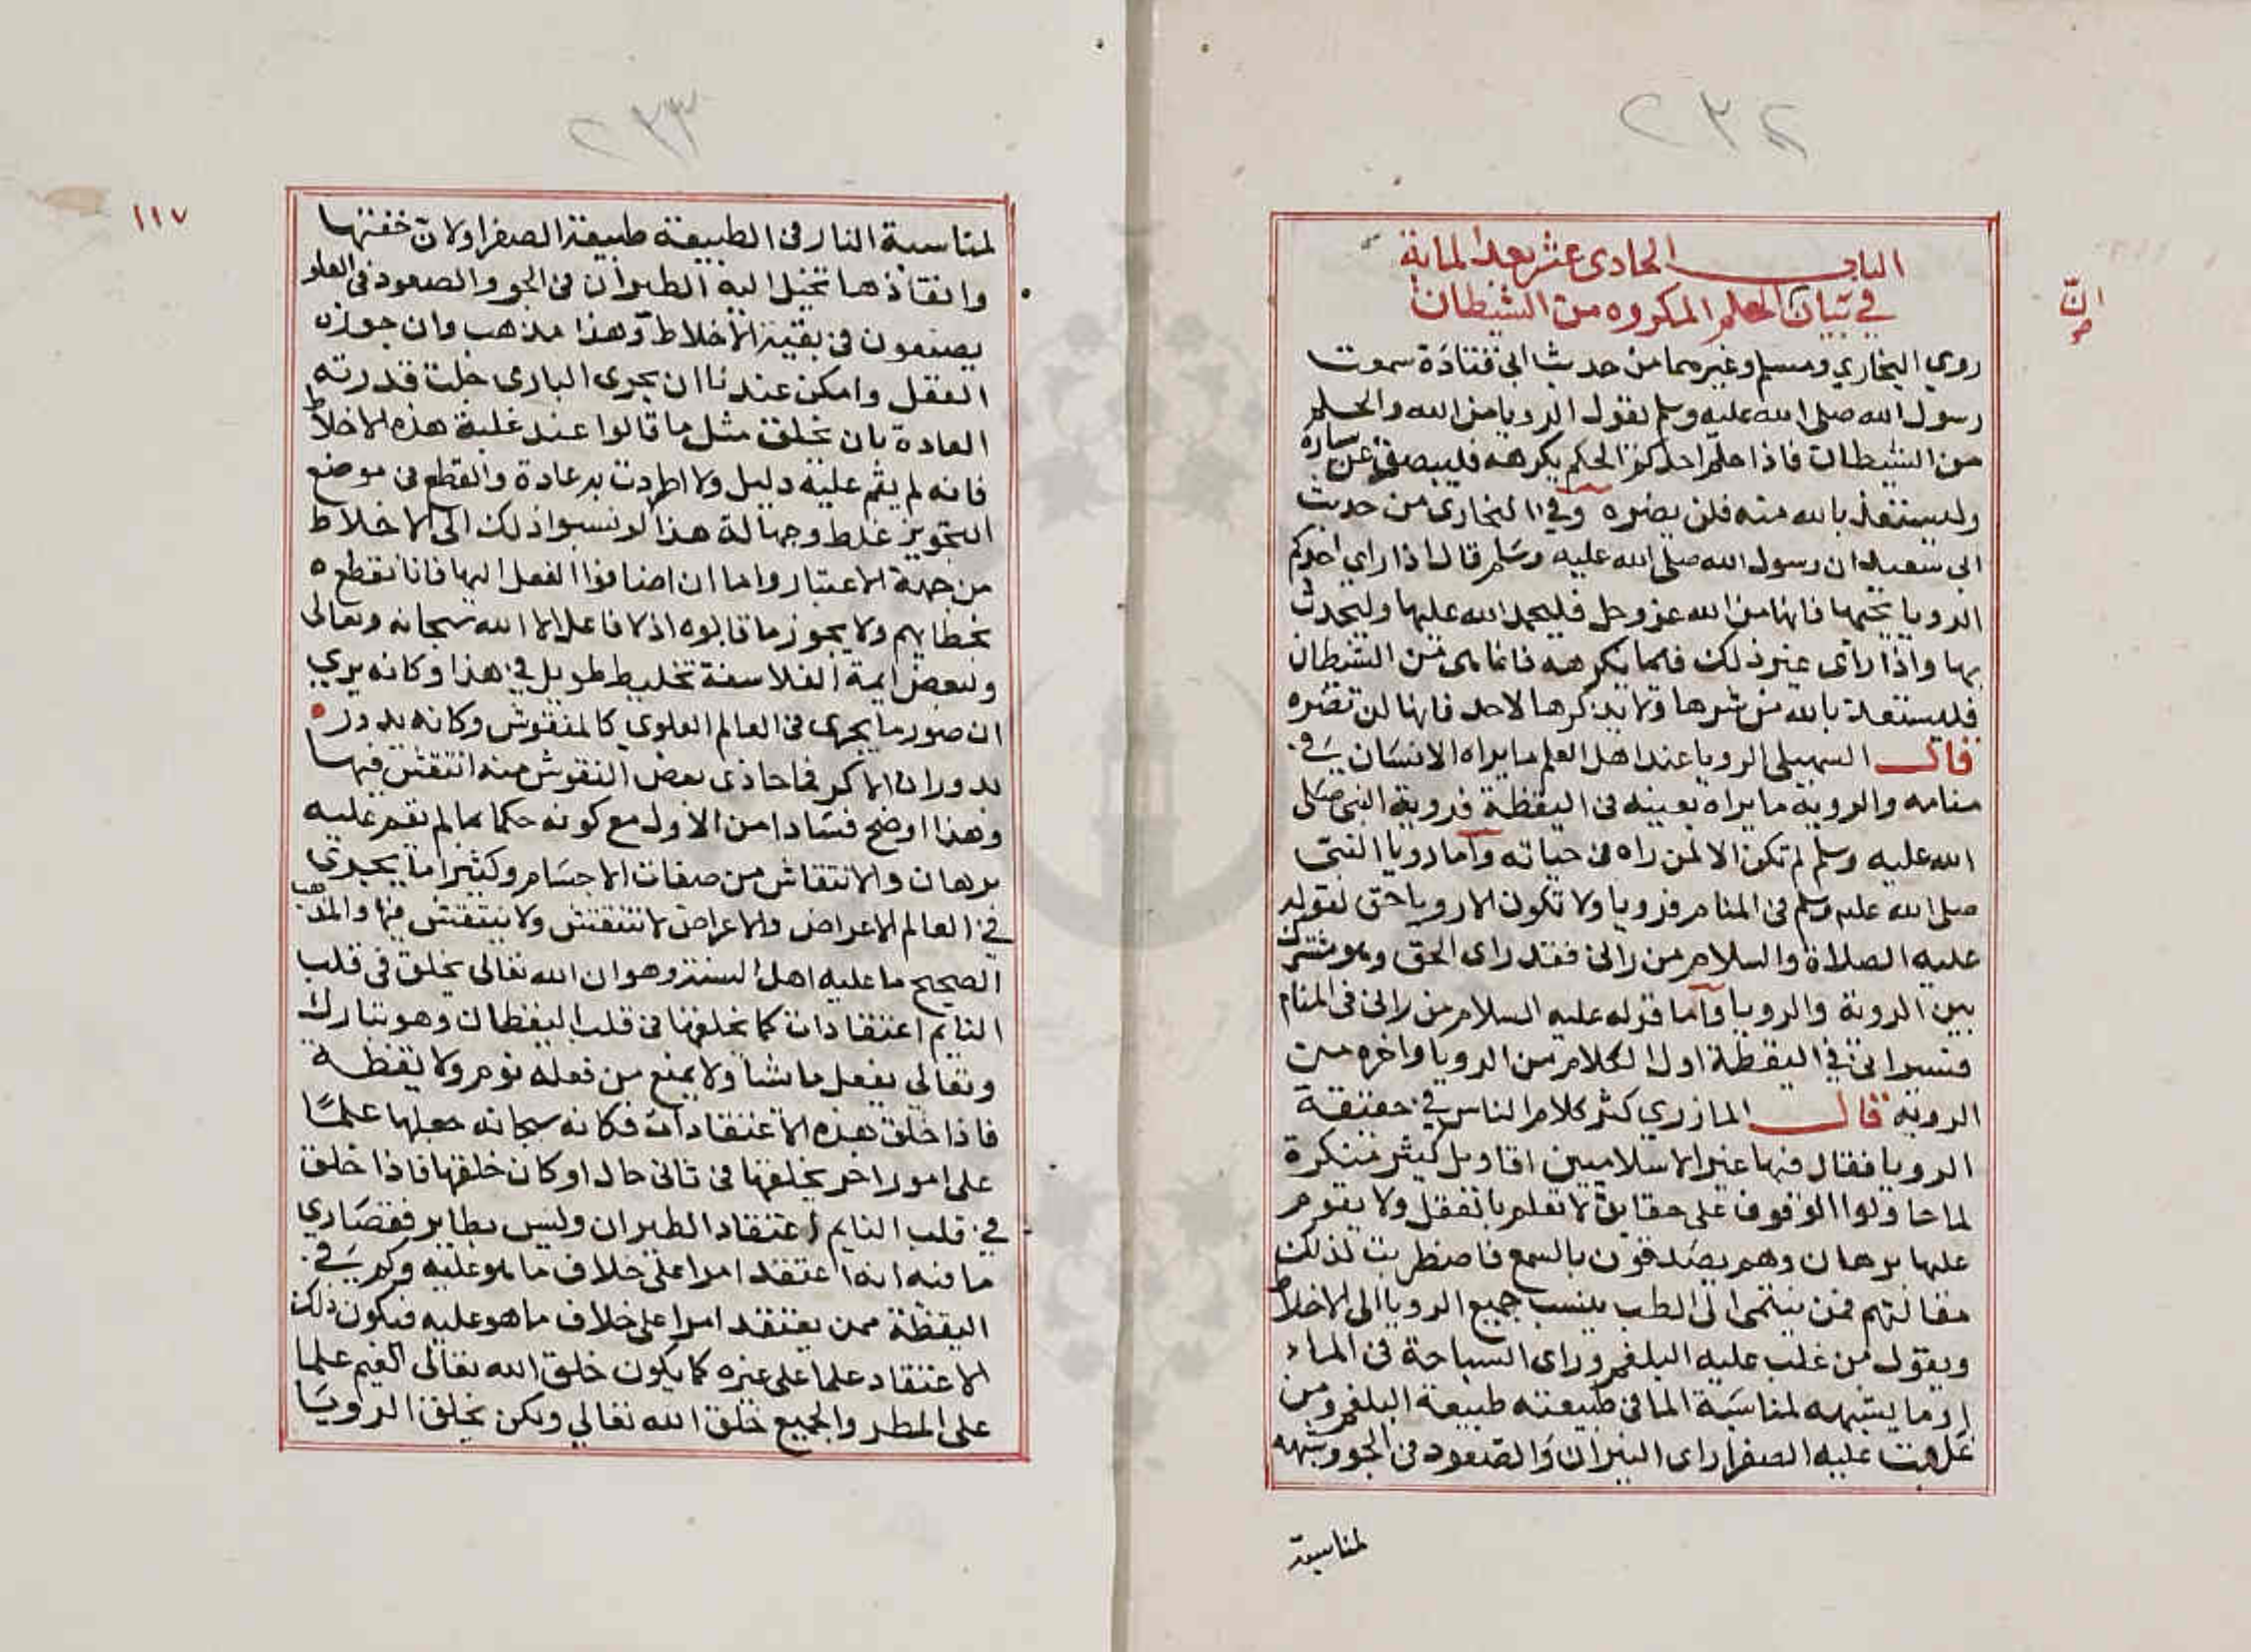 ٢٣٢
الباب الحادى عشر بعد الماية
في بيان الحلم المكروه من الشيطان
روي البخاري ومسلم وغيرهما من حديث ابى قتادة سمعت
رسول الله صلى الله عليه وسلم يقول الرويا من الله والحلم
من الشيطان فاذا حلم احدكم الحلم يكرهه فليبصق عن يساره
وليستعذ بالله منه فلن يضره وفي البخارى من حديث
ابى سعيد ان رسول الله صلى الله عليه وسلم قال اذا راي احدكم
الرويا يحبها فانها من الله عز وجل فليحمد الله عليها وليحدث
بها واذا راى غير ذلك فلما يكرهه فانما هى من الشيطان
فليستعذ بالله من شرها ولا يذكرها لاحد فانها لن تضره
قال السهيلى الرويا عند اهل العلم ما يراه الانسان في
منامه والروية ما يراه بعينه فى اليقظة فروية النبى صلى
الله عليه وسلم لم تكن الا لمن راه فى حياته واما رويا النبى
صلى الله عليه وسلم فى المنام فرويا ولا تكون الا رويا حق لقوله
عليه الصلاة والسلام من رانى فقد راى الحق وهو مشترك
بين الروية والرويا واما قوله عليه السلام من رانى فى المنام
فسيرانى في اليقظة اول الكلام من الرويا واخره من
الروية قال المازري كثر كلام الناس في حقيقة
الرويا فقال فيها غير الاسلاميين اقاويل كثير منكرة
لما حاولوا الوقوف على حقايق لا تعلم بالعقل ولا يقوم
عليها برهان وهم يصدقون بالسمع فاضطربت لذلك
مقالتهم فمن ينتمى الى الطب ينسب جميع الرويا الى الاخلاط
ويقول من غلب عليه البلغم وراى السباحة فى الماء
او ما يشبهه لمناسبة الما فى طبيعته طبيعة البلغم ومن
غلبت عليه الصفرا راى النيران والصعود فى الجو وشبهه
لمناسبة
٢٣٣
١١٧
لمناسبة النار فى الطبيعة طبيعة الصفرا ولان خفتها
وانفاذها تخيل اليه الطيران فى الجو والصعود فى العلو
يصنعون فى بقية الاخلاط وهذا مذهب وان جوزه
العقل وامكن عندنا ان يجرى البارى جلت قدرته
العادة بان يخلق مثل ما قالوا عند غلبة هذه الاخلاط
فانه لم يقم عليه دليل ولا اطردت به عادة والقطع فى موضع
التجويز غلط وجهالة هذا لو نسبوا ذلك الى الاخلاط
من جهة الاعتبار واما ان اضافوا الفعل اليها فانا نقطع
بخطايهم ولا يجوز ما قالوه اذ لا فاعل الا الله سبحانه وتعالى
ولبعض ايمة الفلاسفة تخليط طويل في هذا وكانه يري
ان صور ما يجرى فى العالم العلوي كالمنقوش وكانه يدور
بدوران الاكر فما حاذى بعض النقوش منه انتقش فيها
وهذا اوضح فسادا من الاول مع كونه حكما بما لم يقم عليه
برهان والانتقاش من صفات الاجسام وكثيرا ما يجري
في العالم الاعراض والاعراض لا تنتقش ولا ينتقش فيها والمذهب
الصحيح ما عليه اهل السنة وهو ان الله تعالى يخلق فى قلب
النايم اعتقادات كما يخلقها فى قلب اليقظان وهو تبارك
وتعالى يفعل ما يشا ولا يمنع من فعله نوم ولا يقظة
فاذا خلق هذه الاعتقادات فكانه سبحانه جعلها علما
على امور اخر يخلقها فى ثانى حال او كان خلقها فاذا خلق
في قلب النايم اعتقاد الطيران وليس بطاير فقصاري
ما فيه انه اعتقد امرا على خلاف ما هو عليه وكم في
اليقظة ممن يعتقد امرا على خلاف ما هو عليه فيكون ذلك
الاعتقاد علما على غيره كما يكون خلق الله تعالى الغيم علما
على المطر والجميع خلق الله تعالي ولكن يخلق الرويا